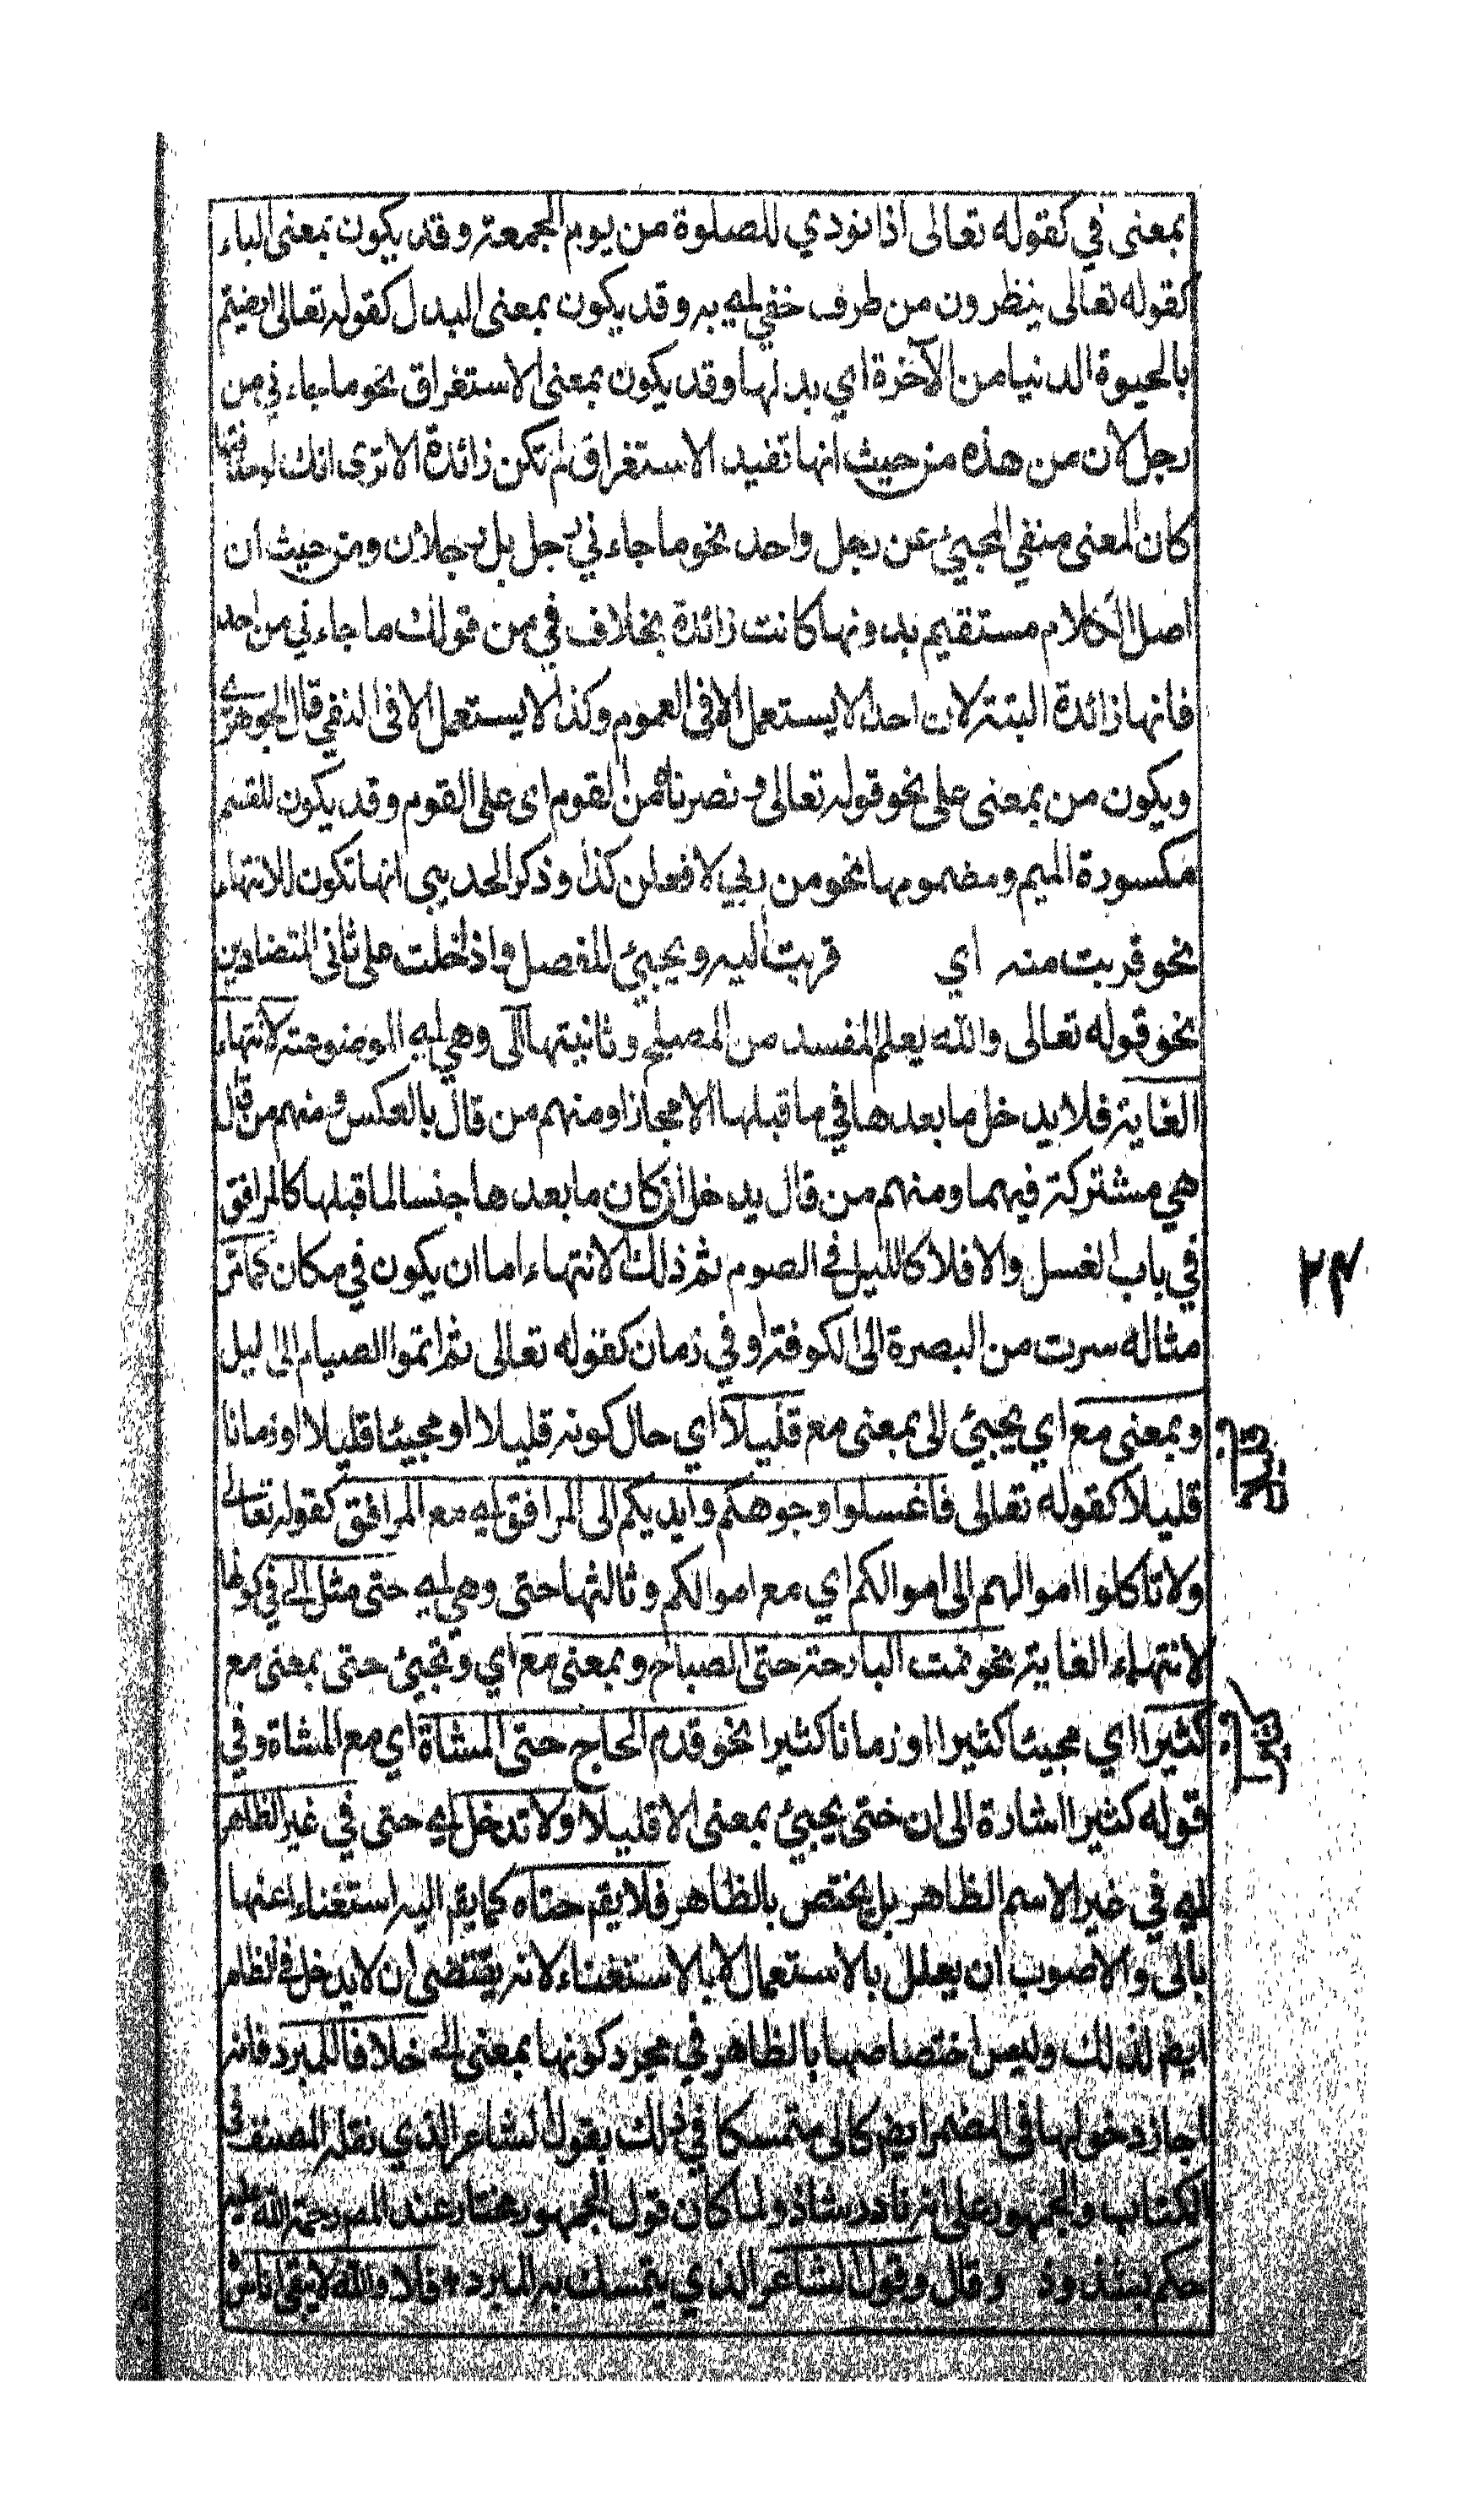 بمعنى في كقوله تعالى اذا نودي للصلوة من يوم الجمعة وقد يكون بمعنى الباء
كقوله تعالى ينظرون من طرف خفي اي به وقد يكون بمعنى البدل كقوله تعالى ارضيتم
بالحيوة الدنيا من الآخرة اي بدلها وقد يكون بمعنى الاستغراق نحو ما جاءني من
رجل لان من هذه من حيث انها تفيد الاستغراق لم تكن زائدة الا ترى انك لو حذفتها
كان المعنى منفي المجيئ عن رجل واحد نحو ما جاءني رجل بل رجلان ومن حيث ان
اصل الكلام مستقيم بدونها كانت زائدة بخلاف في من قولك ما جاءني من احد
فانها زائدة البتة لان احدا لا يستعمل الا في العموم وكذا لا يستعمل الا في النفي قال الجوهري
ويكون من بمعنى على نحو قوله تعالى ونصرناه من القوم اى على القوم وقد يكون للقسم
مكسورة الميم ومضمومها نحو من ربي لافعلن كذا وذكر الحديبي انها تكون للانتهاء
نحو قربت منه اي قربت اليه ويجيئ للفصل واذا دخلت على ثاني المتضادين
نحو قوله تعالى والله يعلم المفسد من المصلح وثانيتها الى وهي اي الموضوعة لانتهاء
الغاية فلا يدخل ما بعدها في ما قبلها الا مجازا ومنهم من قال بالعكس ومنهم من قال
هي مشتركة فيهما ومنهم من قال يدخل ان كان ما بعدها جنسا لما قبلها كالمرافق
في باب الغسل والا فلا كالليل في الصوم ثم ذلك الانتهاء اما ان يكون في مكان كما مر
مثاله سرت من البصرة الى الكوفة او في زمان كقوله تعالى ثم اتموا الصيام الى ليل
وبمعنى مع اي يجيئ الى بمعنى مع قليلا اي حال كونه قليلا او مجيئا قليلا او زمانا
قليلا كقوله تعالى فاغسلوا وجوهكم وايديكم الى المرافق اي مع المرافق كقوله تعالى
ولا تاكلوا اموالهم الى اموالكم اي مع اموالكم وثالثها حتى وهي اي حتى مثل الى في كونها
لانتهاء الغاية نحو نمت البارحة حتى الصباح وبمعنى مع اي وتجيئ حتى بمعنى مع
كثيرا اي مجيئا كثيرا او زمانا كثيرا نحو قدم الحاج حتى المشاة اي مع المشاة وفي
قوله كثيرا اشارة الى ان حتى يجيئ بمعنى الا قليلا ولا تدخل اي حتى في غير الظاهر
اي في غير الاسم الظاهر بل يختص بالظاهر فلا يقم حتاه كما يقم اليه استغناء عنها
بالى والاصوب ان يعلل بالاستعمال لا بالاستغناء لانه يقتضى ان لا يدخل في الظاهر
ايضم لذلك وليس اختصاصها بالظاهر في مجرد كونها بمعنى الى خلافا للمبرد فانه
اجاز دخولها في المضمر ايضم كالى متمسكا في ذلك بقول الشاعر الذي نقله المصنف في
الكتاب والجمهور على انه نادر شاذ ولما كان قول الجمهور مختارا عند المصم رحمة الله عليه
حكم بشذوذ وقال وقول الشاعر الذي يتمسك به المبرد فلا والله لا يبقى اناس
٢٤